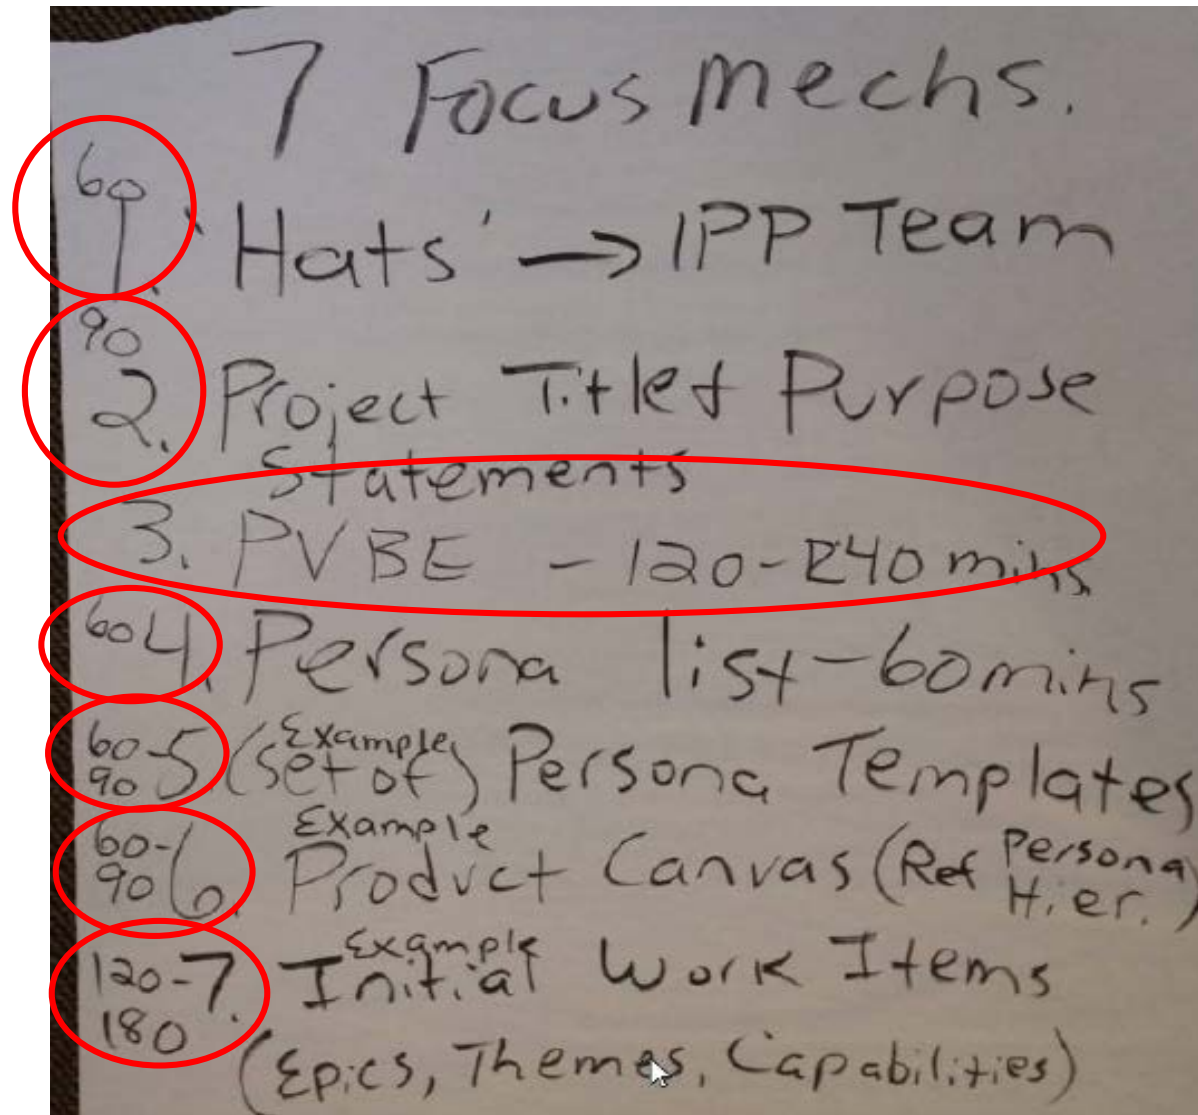 7 Focus Mechs.
60
1. 'Hats' → IPP Team
90
2. Project Title & Purpose
Statements
3. PVBE - 120-240 mins
60 4. Persona list - 60 mins
60- 5. (Example
90 (set of) Persona Templates
60- 6. Example
90 Product Canvas (Ref Persona
Hier.)
120- 7. Example
180 Initial Work Items
(Epics, Themes, Capabilities)